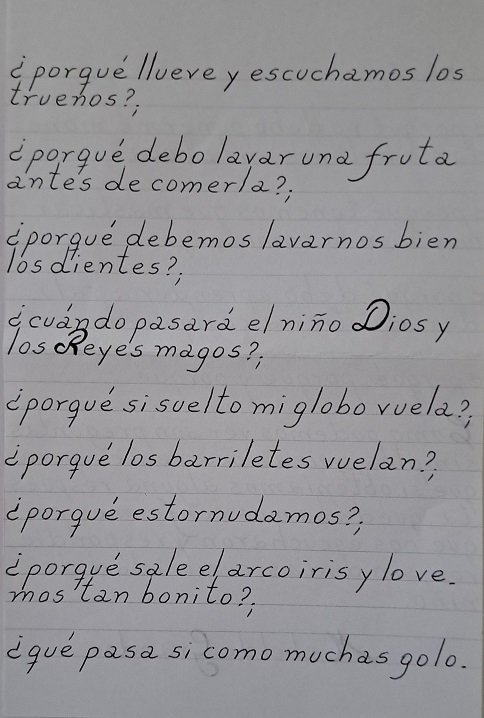 ¿porqué llueve y escuchamos los
truenos?;
¿porqué debo lavar una fruta
antes de comerla?;
¿porqué debemos lavarnos bien
los dientes?;
¿cuándo pasará el niño Dios y
los Reyes magos?;
¿porqué si suelto mi globo vuela?;
¿porqué los barriletes vuelan?;
¿porqué estornudamos?;
¿porqué sale el arco iris y lo ve-
mos tan bonito?;
¿qué pasa si como muchas golo-